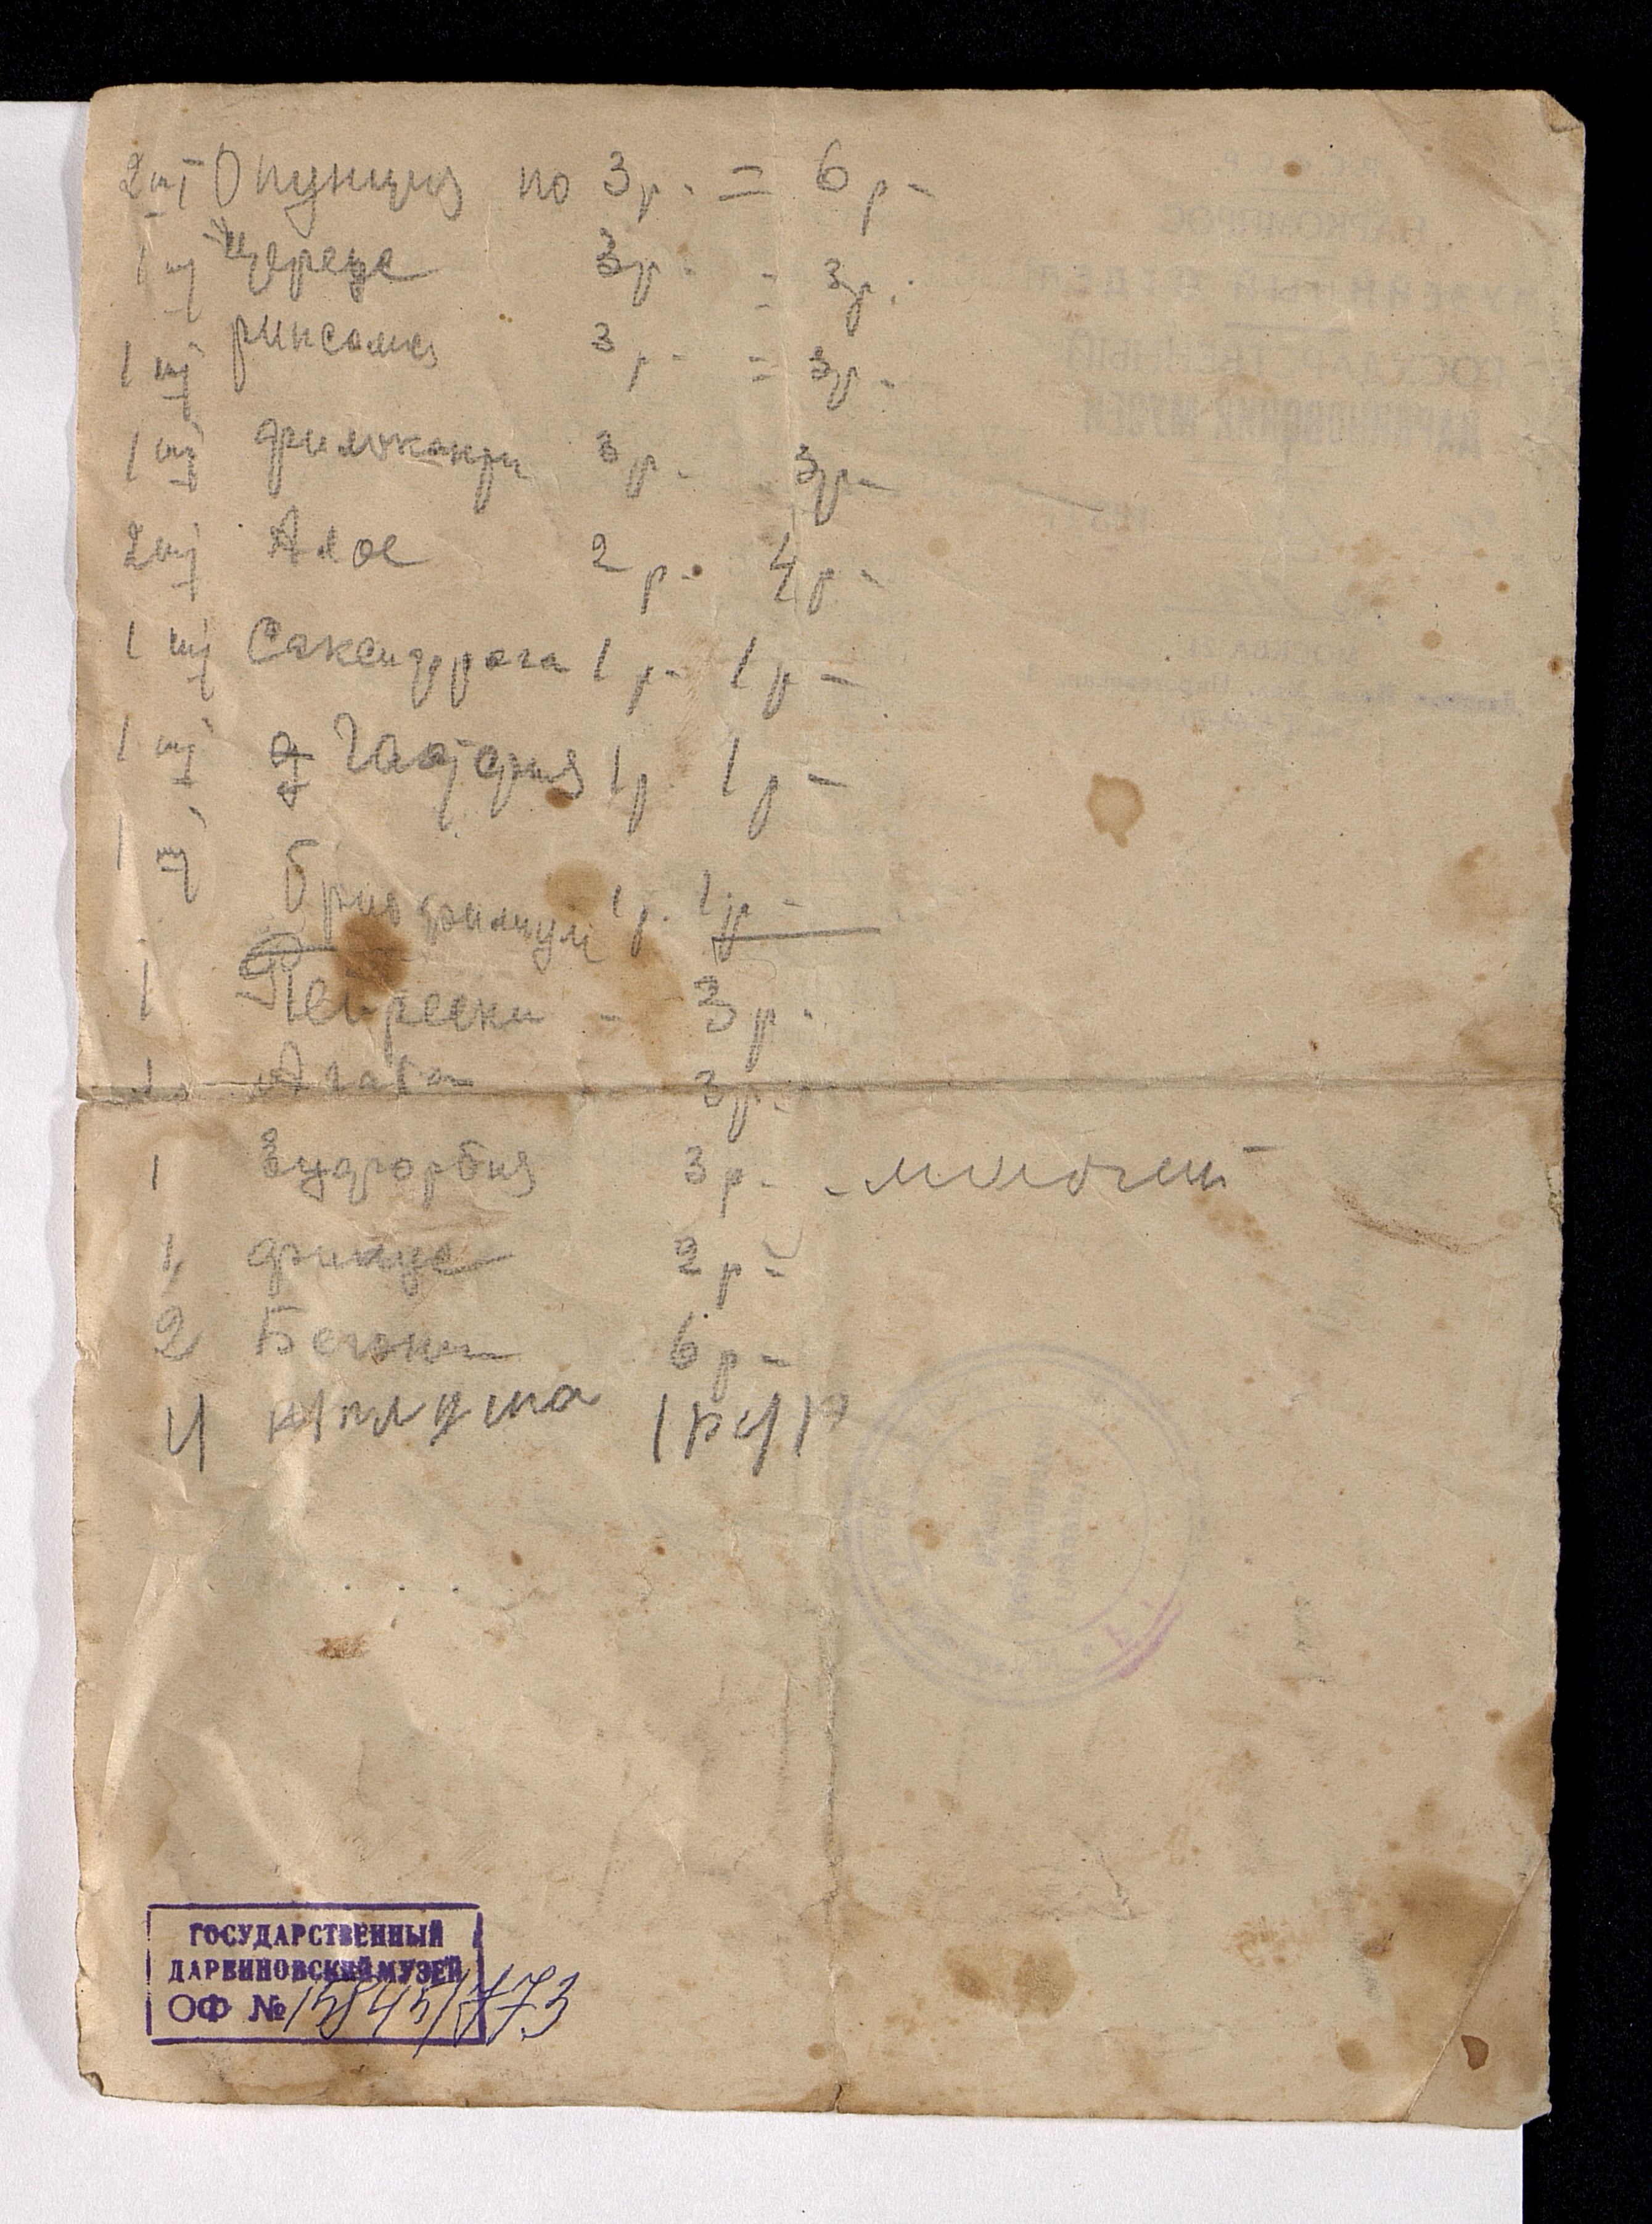 2 шт Опунция по 3р. = 6р-
1 шт Цереус 3р. = 3р.
1 шт рипсалис 3р. = 3р.
1 шт филокакту 3р. 3р-
2 шт Алое 2р. 4р-
1 шт 1р- 1р-
1 шт 1р 1р-
1 шт Бриофиллум 1р. 1р-
1 - 3р.
1 Агава 3р.
1 Эуфорбия 3р. - молочай
1 фикус 2р-
2 Бегони 6р-
4 1р 4р
ГОСУДАРСТВЕННЫЙ
ДАРВИНОВСКИЙ МУЗЕЙ
ОФ № 15845/773